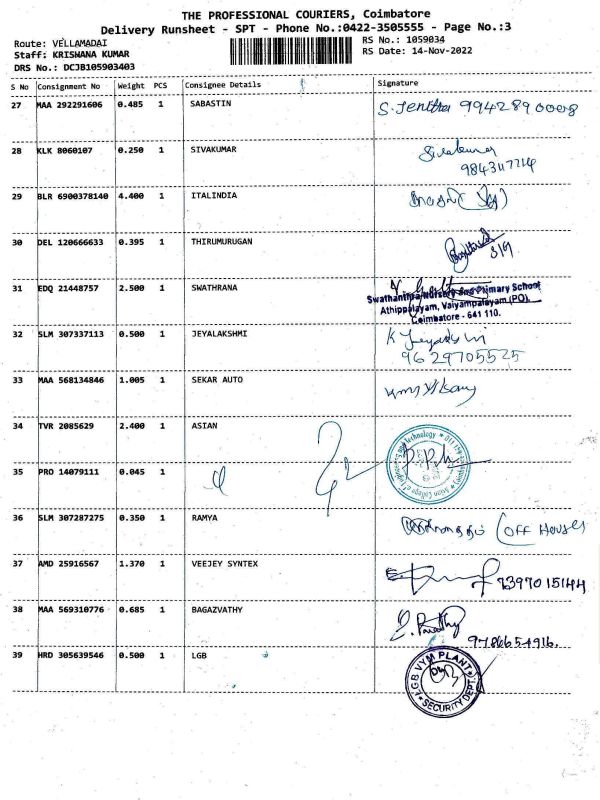 THE PROFESSIONAL COURIERS, Coimbatore
Delivery Runsheet - SPT - Phone No.:0422-3505555 - Page No.:3
Route: VELLAMADAI
RS No.: 1059034
Staff: KRISHANA KUMAR
RS Date: 14-Nov-2022
DRS No.: DCJB105903403
S No Consignment No Weight PCS Consignee Details Signature
27 MAA 292291606 0.485 1 SABASTIN S. Jenitha 9942890008
28 KLK 8060107 0.250 1 SIVAKUMAR Sivakumar
9843117714
29 BLR 6900378140 4.400 1 ITALINDIA
30 DEL 120666633 0.395 1 THIRUMURUGAN
31 EDQ 21448757 2.500 1 SWATHRANA
Swathanthra Nursery and Primary School
Athippalayam, Vaiyampalayam (PO),
Coimbatore - 641 110.
32 SLM 307337113 0.500 1 JEYALAKSHMI K
9629705525
33 MAA 568134846 1.005 1 SEKAR AUTO
34 TVR 2085629 2.400 1 ASIAN
35 PRO 14079111 0.045 1
36 SLM 307287275 0.350 1 RAMYA (OFF House)
37 AMD 25916567 1.370 1 VEEJEY SYNTEX 9397015144
38 MAA 569310776 0.685 1 BAGAZVATHY
9786654916.
39 HRD 305639546 0.500 1 LGB
LGB VYM PLANT
SECURITY DEPT.